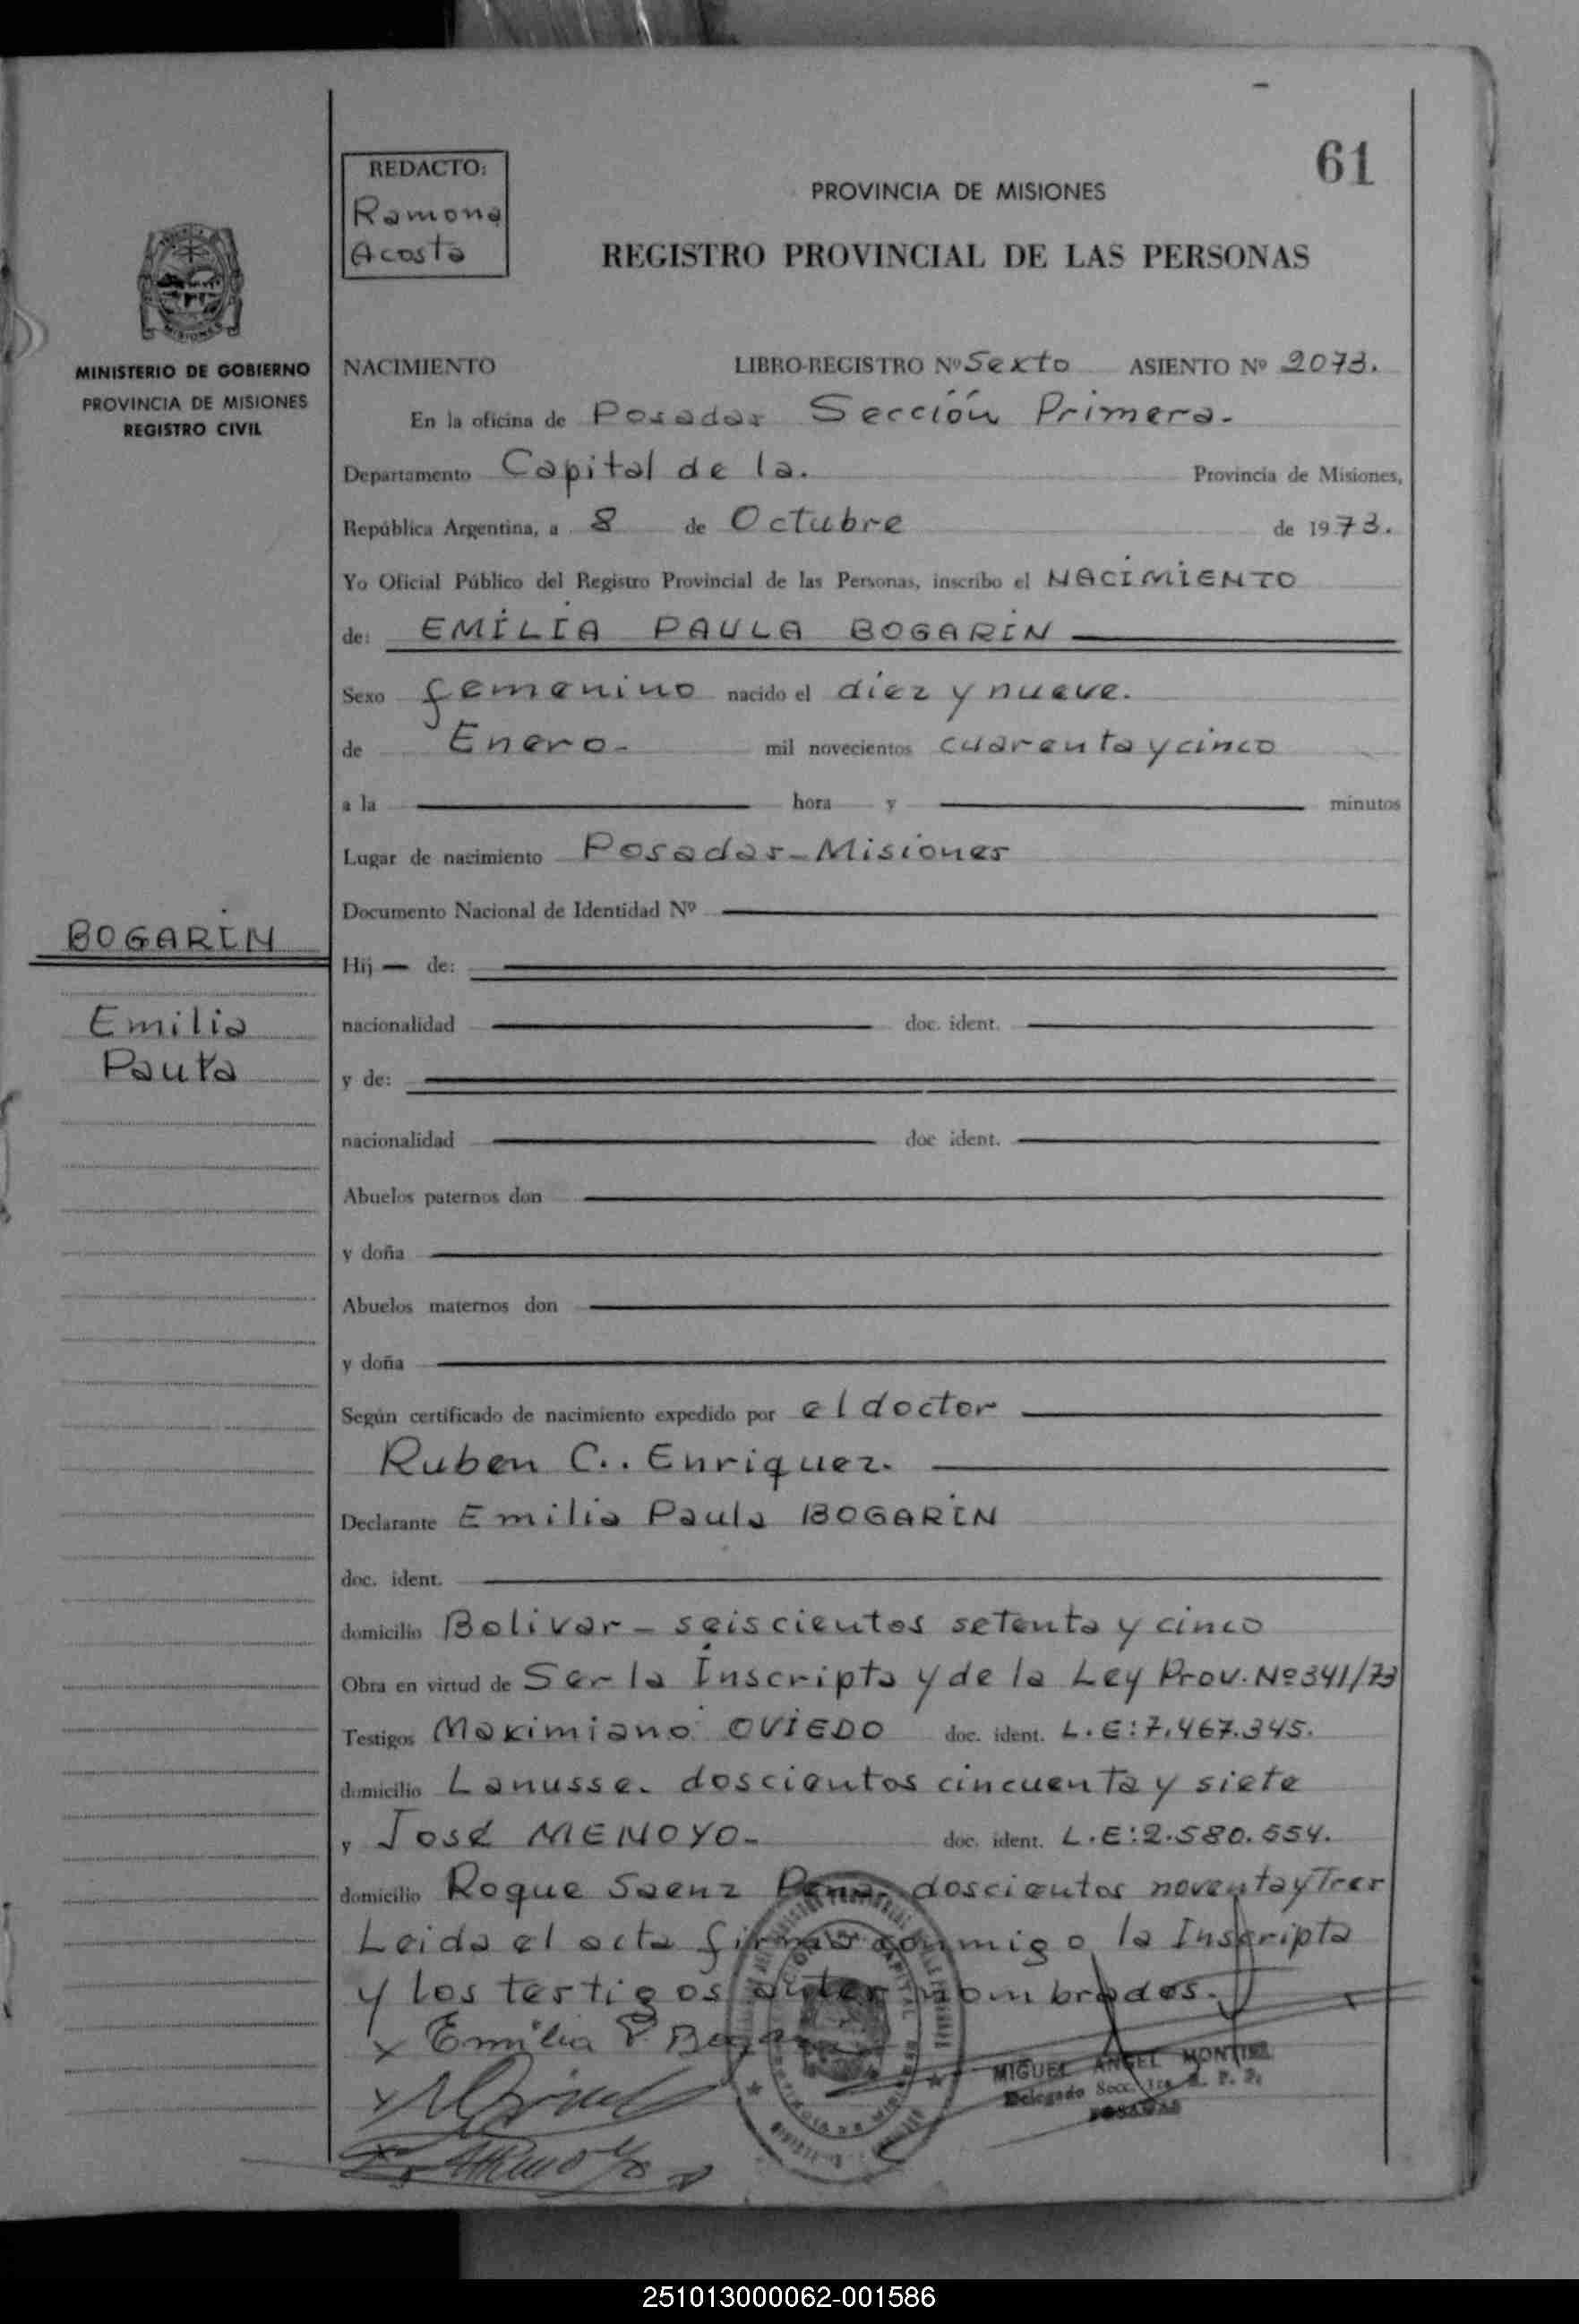 61
REDACTO:
Ramona
Acosta
PROVINCIA DE MISIONES
REGISTRO PROVINCIAL DE LAS PERSONAS
MINISTERIO DE GOBIERNO
PROVINCIA DE MISIONES
REGISTRO CIVIL
NACIMIENTO LIBRO-REGISTRO Nº Sexto ASIENTO Nº 2073.
En la oficina de Posadas Sección Primera.
Departamento Capital de la. Provincia de Misiones,
República Argentina, a 8 de Octubre de 1973.
Yo Oficial Público del Registro Provincial de las Personas, inscribo el NACIMIENTO
de: EMILIA PAULA BOGARIN
Sexo femenino nacido el diez y nueve.
de Enero- mil novecientos cuarenta y cinco
a la hora y minutos
Lugar de nacimiento Posadas-Misiones
Documento Nacional de Identidad Nº
BOGARIN
Emilia
Paula
Hij — de:
nacionalidad doc. ident.
y de:
nacionalidad doc ident.
Abuelos paternos don
y doña
Abuelos maternos don
y doña
Según certificado de nacimiento expedido por el doctor
Ruben C.. Enriquez.
Declarante Emilia Paula BOGARIN
doc. ident.
domicilio Bolivar - seiscientos setenta y cinco
Obra en virtud de Ser la Inscripta y de la Ley Prov. Nº 341/73
Testigos Maximiano OVIEDO doc. ident. L.E:7.467.345.
domicilio Lanusse. doscientos cincuenta y siete
y José MENOYO- doc. ident. L.E:2.580.554.
domicilio Roque Saenz Pena. doscientos noventa y Tres
Leida el acta firman conmigo la Inscripta
y los testigos antes nombrados.
x Emilia P. Bogarin
MIGUEL ANGEL MONTIEL
Delegado Secc. 1ra R. P. P.
POSADAS
251013000062-001586